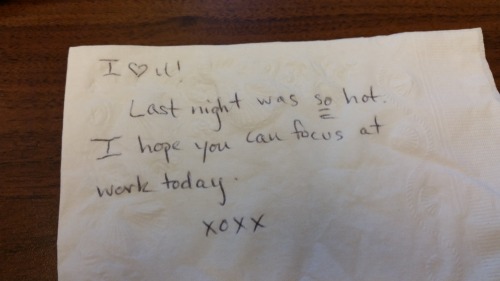 I ♡ u!
Last night was so hot.
I hope you can focus at
work today.
xoxx